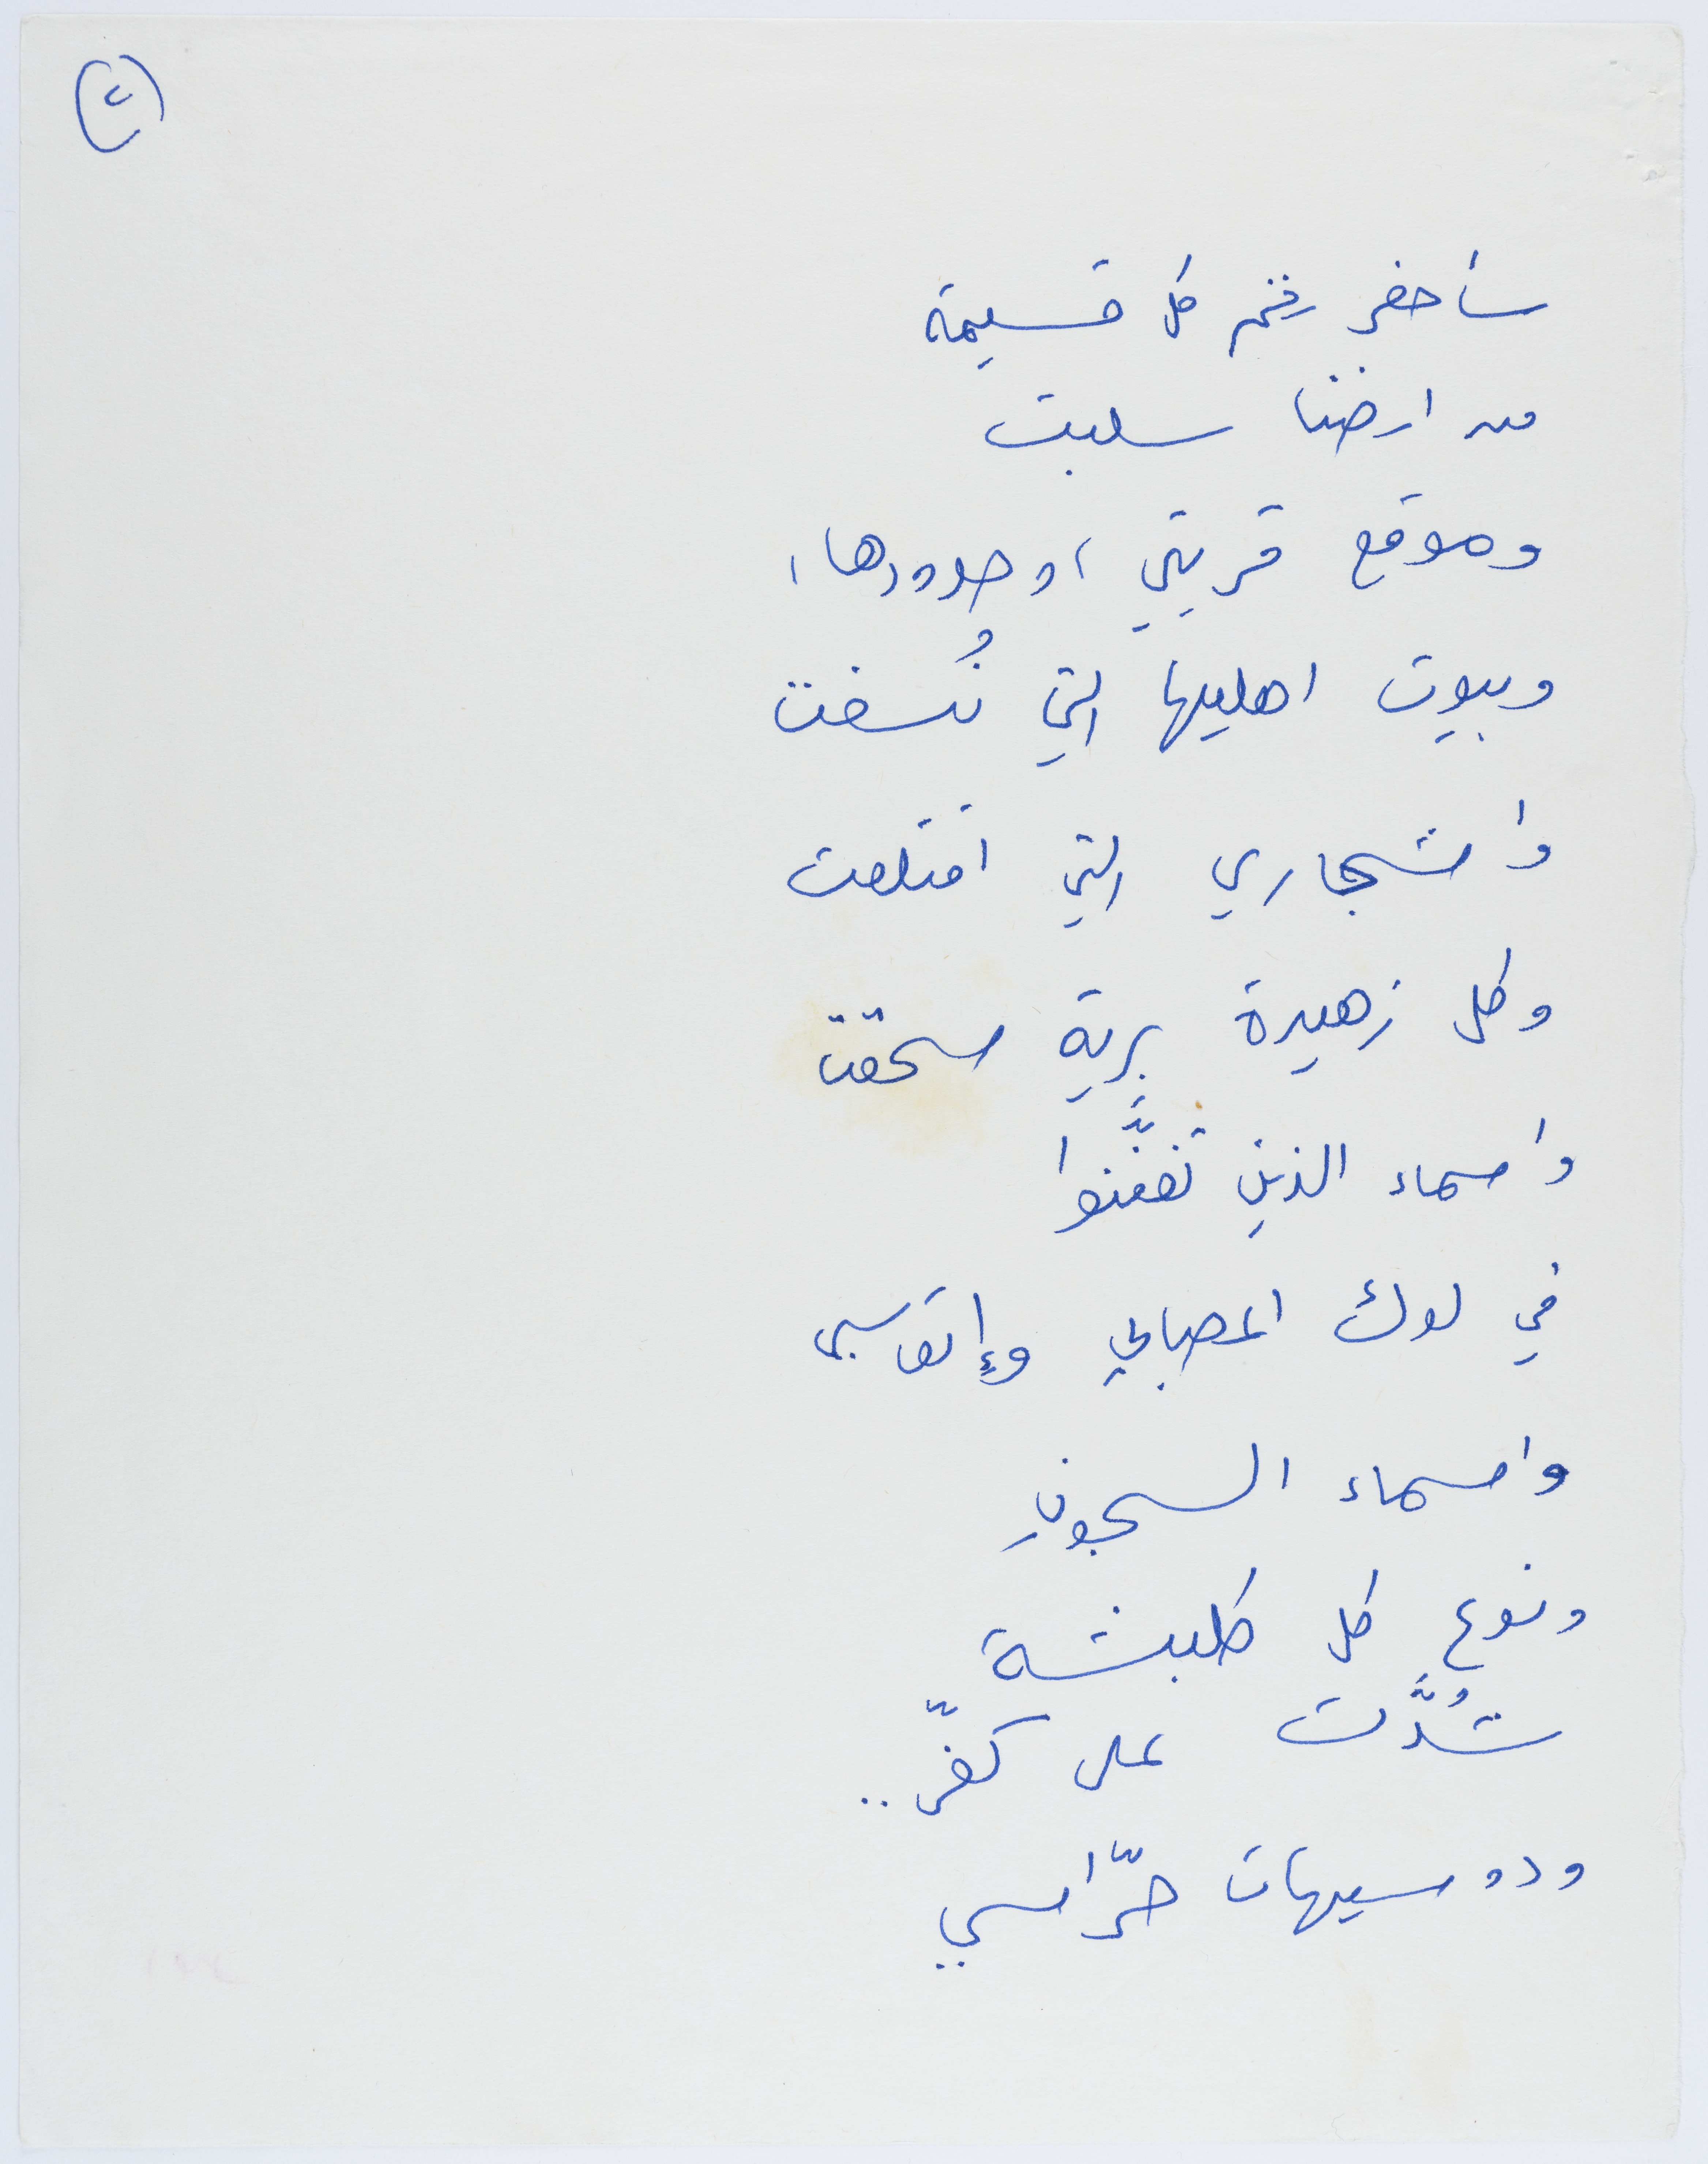 (٢)
سأحفر رقم كل قسيمة
من ارضنا سلبت
وموقع قريتي، وحدودها،
وبيوت اهليها التي نُسفت
واشجاري التي اقتلعت
وكل زهيرة برية سحقت
واسماء الذين تفنَّنوا
في لوك اعصابي وإتعاسي
واسماء السجونِ
ونوع كل كلبشة
شُدَّت على كفّي..
ودوسيهات حرّاسي